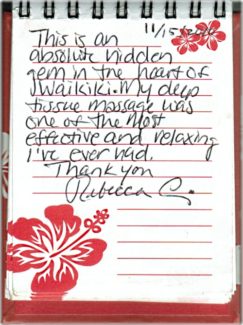 11/15/
This is an
absolute hidden
gem in the heart of
Waikiki. My deep
tissue massage was
one of the most
effective and relaxing
I've ever had.
Thank you
Rebecca C.